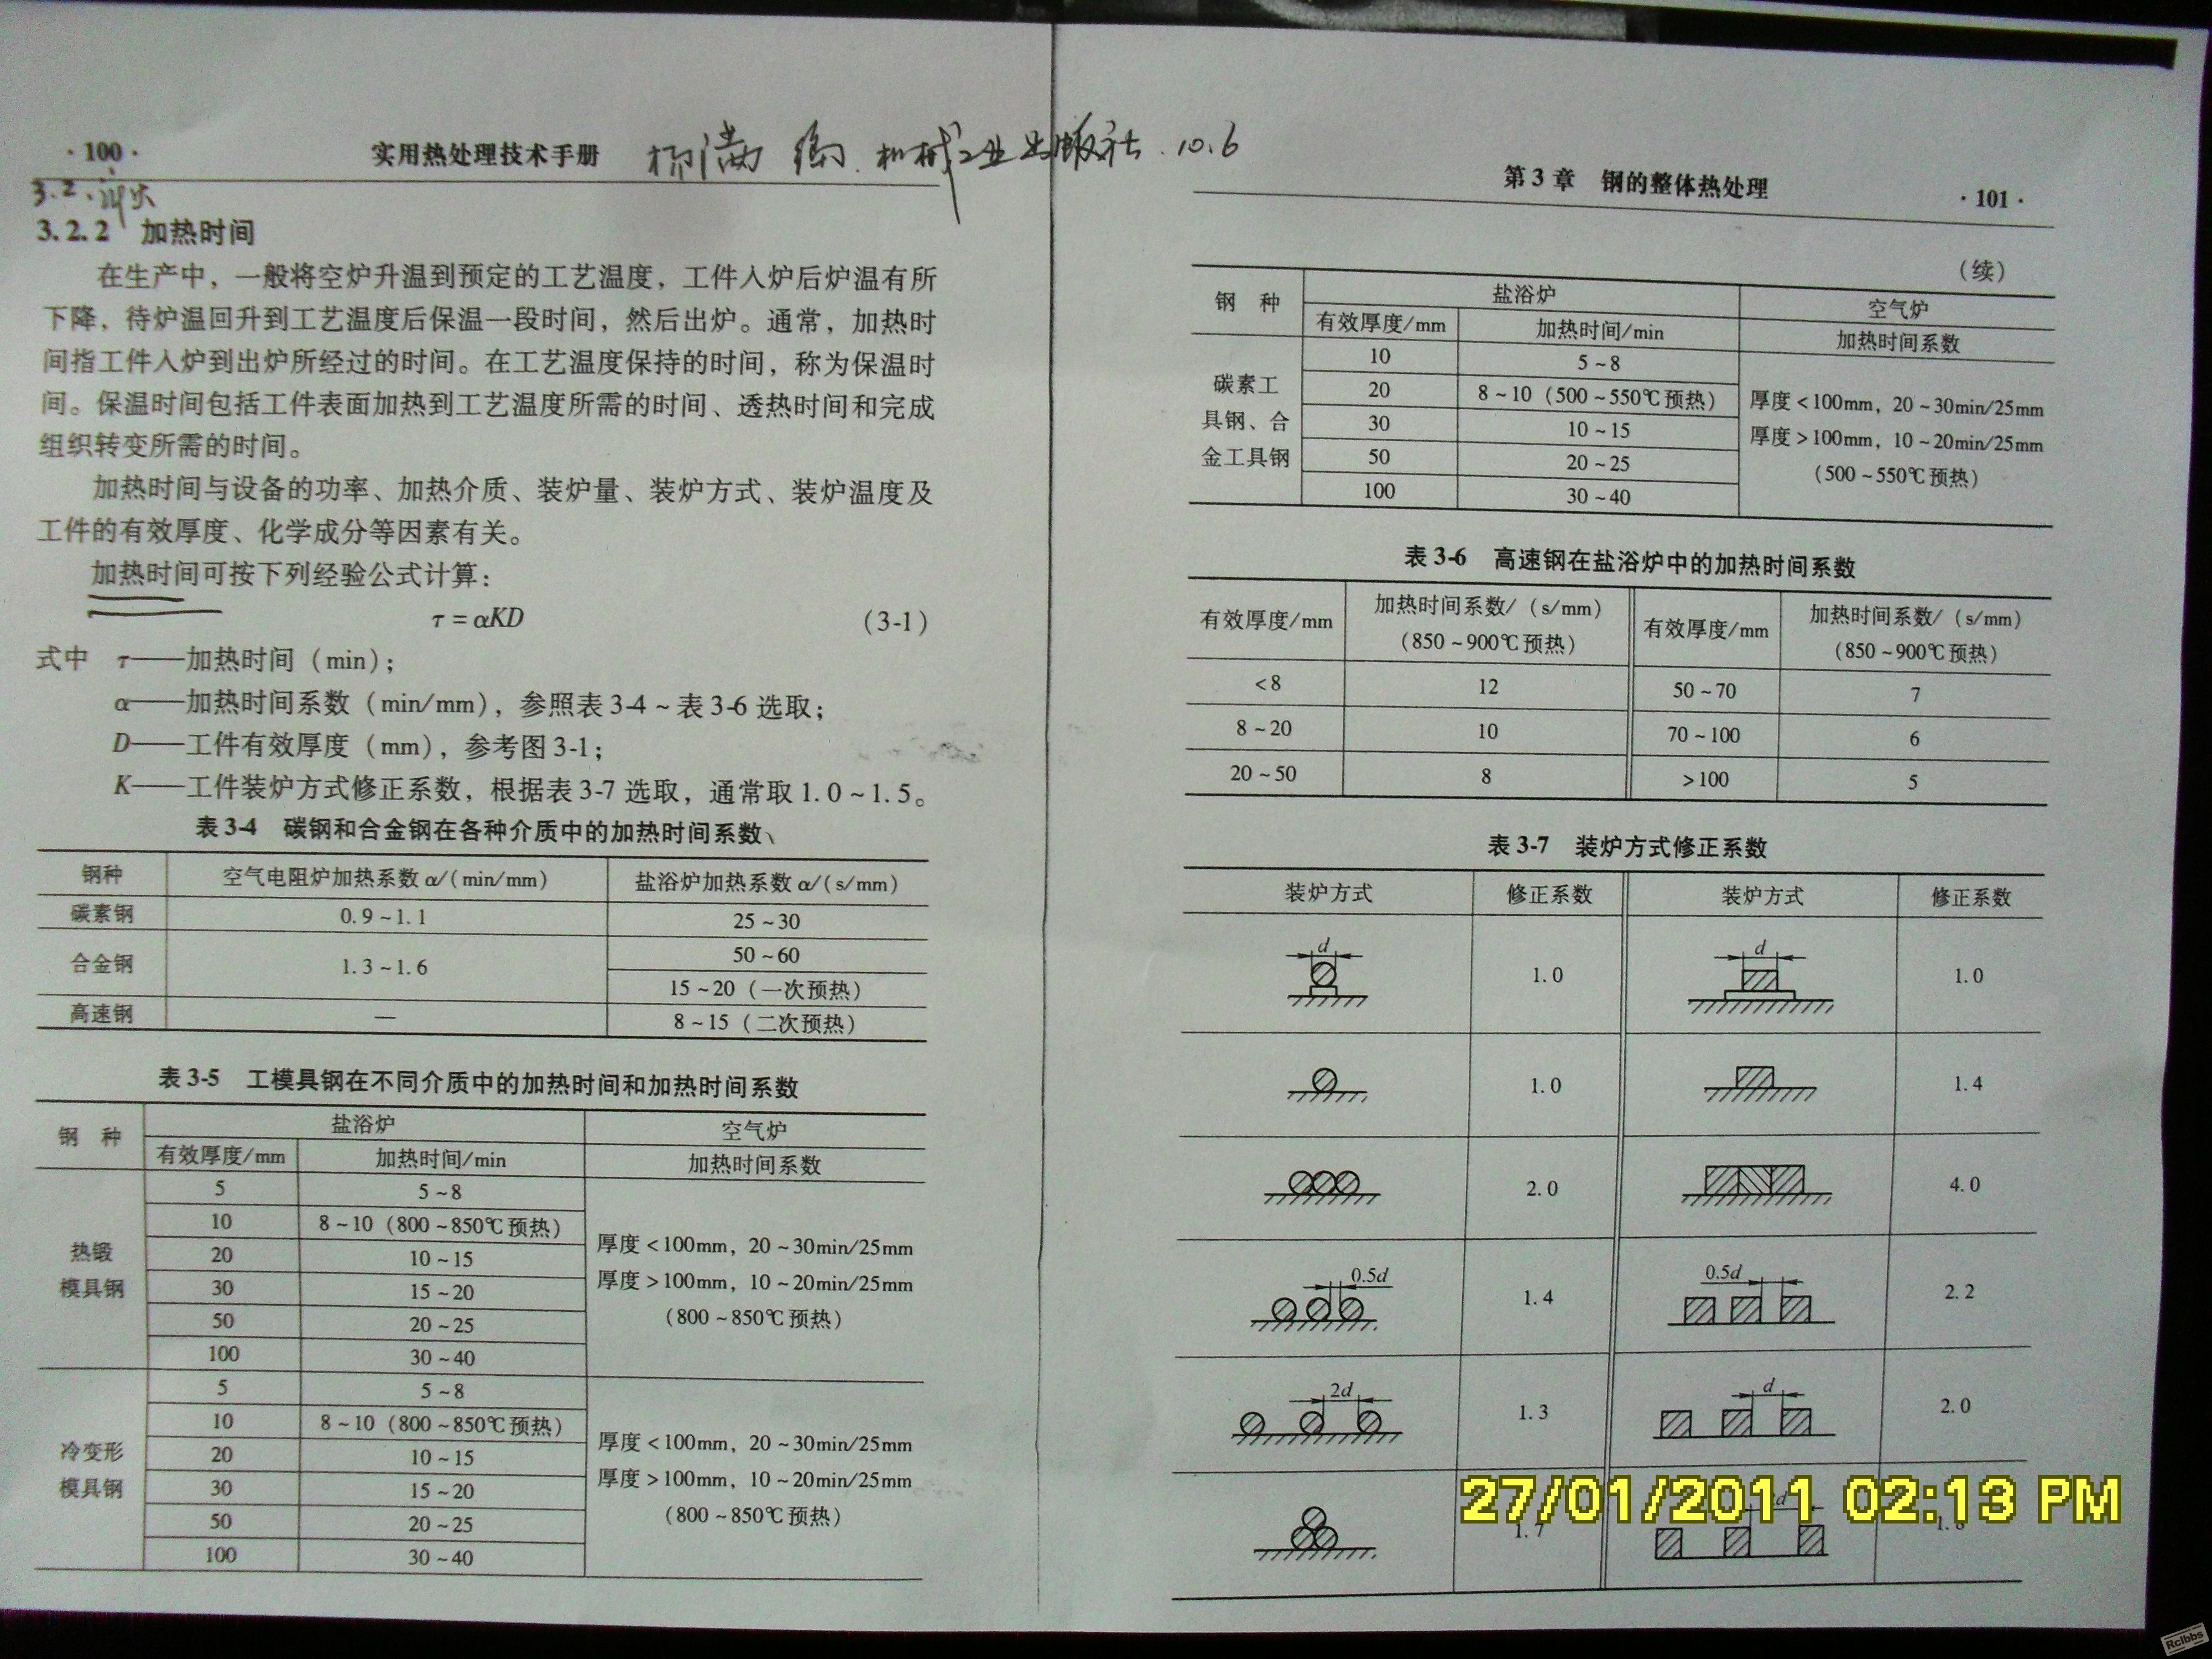 · 100 ·
实用热处理技术手册 杨满 编. 机械工业出版社. 10.6
3.2. 淬火
3. 2. 2 加热时间
在生产中，一般将空炉升温到预定的工艺温度，工件入炉后炉温有所
下降，待炉温回升到工艺温度后保温一段时间，然后出炉。通常，加热时
间指工件入炉到出炉所经过的时间。在工艺温度保持的时间，称为保温时
间。保温时间包括工件表面加热到工艺温度所需的时间、透热时间和完成
组织转变所需的时间。
加热时间与设备的功率、加热介质、装炉量、装炉方式、装炉温度及
工件的有效厚度、化学成分等因素有关。
加热时间可按下列经验公式计算：
τ = αKD (3-1)
式中 τ——加热时间（min）；
α——加热时间系数（min/mm），参照表 3-4 ~ 表 3-6 选取；
D——工件有效厚度（mm），参考图 3-1；
K——工件装炉方式修正系数，根据表 3-7 选取，通常取 1. 0 ~ 1. 5。
表 3-4 碳钢和合金钢在各种介质中的加热时间系数
钢种 空气电阻炉加热系数 α/(min/mm) 盐浴炉加热系数 α/(s/mm)
碳素钢 0. 9 ~ 1. 1 25 ~ 30
合金钢 1. 3 ~ 1. 6 50 ~ 60
15 ~ 20（一次预热）
高速钢 — 8 ~ 15（二次预热）
表 3-5 工模具钢在不同介质中的加热时间和加热时间系数
钢 种 盐浴炉 空气炉
有效厚度/mm 加热时间/min 加热时间系数
热锻
模具钢
5 5 ~ 8
10 8 ~ 10（800 ~ 850℃预热）
20 10 ~ 15
30 15 ~ 20
50 20 ~ 25
100 30 ~ 40
厚度 < 100mm，20 ~ 30min/25mm
厚度 > 100mm，10 ~ 20min/25mm
（800 ~ 850℃预热）
冷变形
模具钢
5 5 ~ 8
10 8 ~ 10（800 ~ 850℃预热）
20 10 ~ 15
30 15 ~ 20
50 20 ~ 25
100 30 ~ 40
厚度 < 100mm，20 ~ 30min/25mm
厚度 > 100mm，10 ~ 20min/25mm
（800 ~ 850℃预热）
第 3 章 钢的整体热处理 · 101 ·
（续）
钢 种 盐浴炉 空气炉
有效厚度/mm 加热时间/min 加热时间系数
碳素工
具钢、合
金工具钢
10 5 ~ 8
20 8 ~ 10（500 ~ 550℃预热）
30 10 ~ 15
50 20 ~ 25
100 30 ~ 40
厚度 < 100mm，20 ~ 30min/25mm
厚度 > 100mm，10 ~ 20min/25mm
（500 ~ 550℃预热）
表 3-6 高速钢在盐浴炉中的加热时间系数
有效厚度/mm 加热时间系数/（s/mm） 有效厚度/mm 加热时间系数/（s/mm）
（850 ~ 900℃预热） （850 ~ 900℃预热）
< 8 12 50 ~ 70 7
8 ~ 20 10 70 ~ 100 6
20 ~ 50 8 > 100 5
表 3-7 装炉方式修正系数
装炉方式 修正系数 装炉方式 修正系数
d 1. 0 d 1. 0
1. 0 1. 4
2. 0 4. 0
0.5d 1. 4 0.5d 2. 2
2d 1. 3 d 2. 0
1. 7 d 1. 8
27/01/2011 02:13 PM
Rclbbs